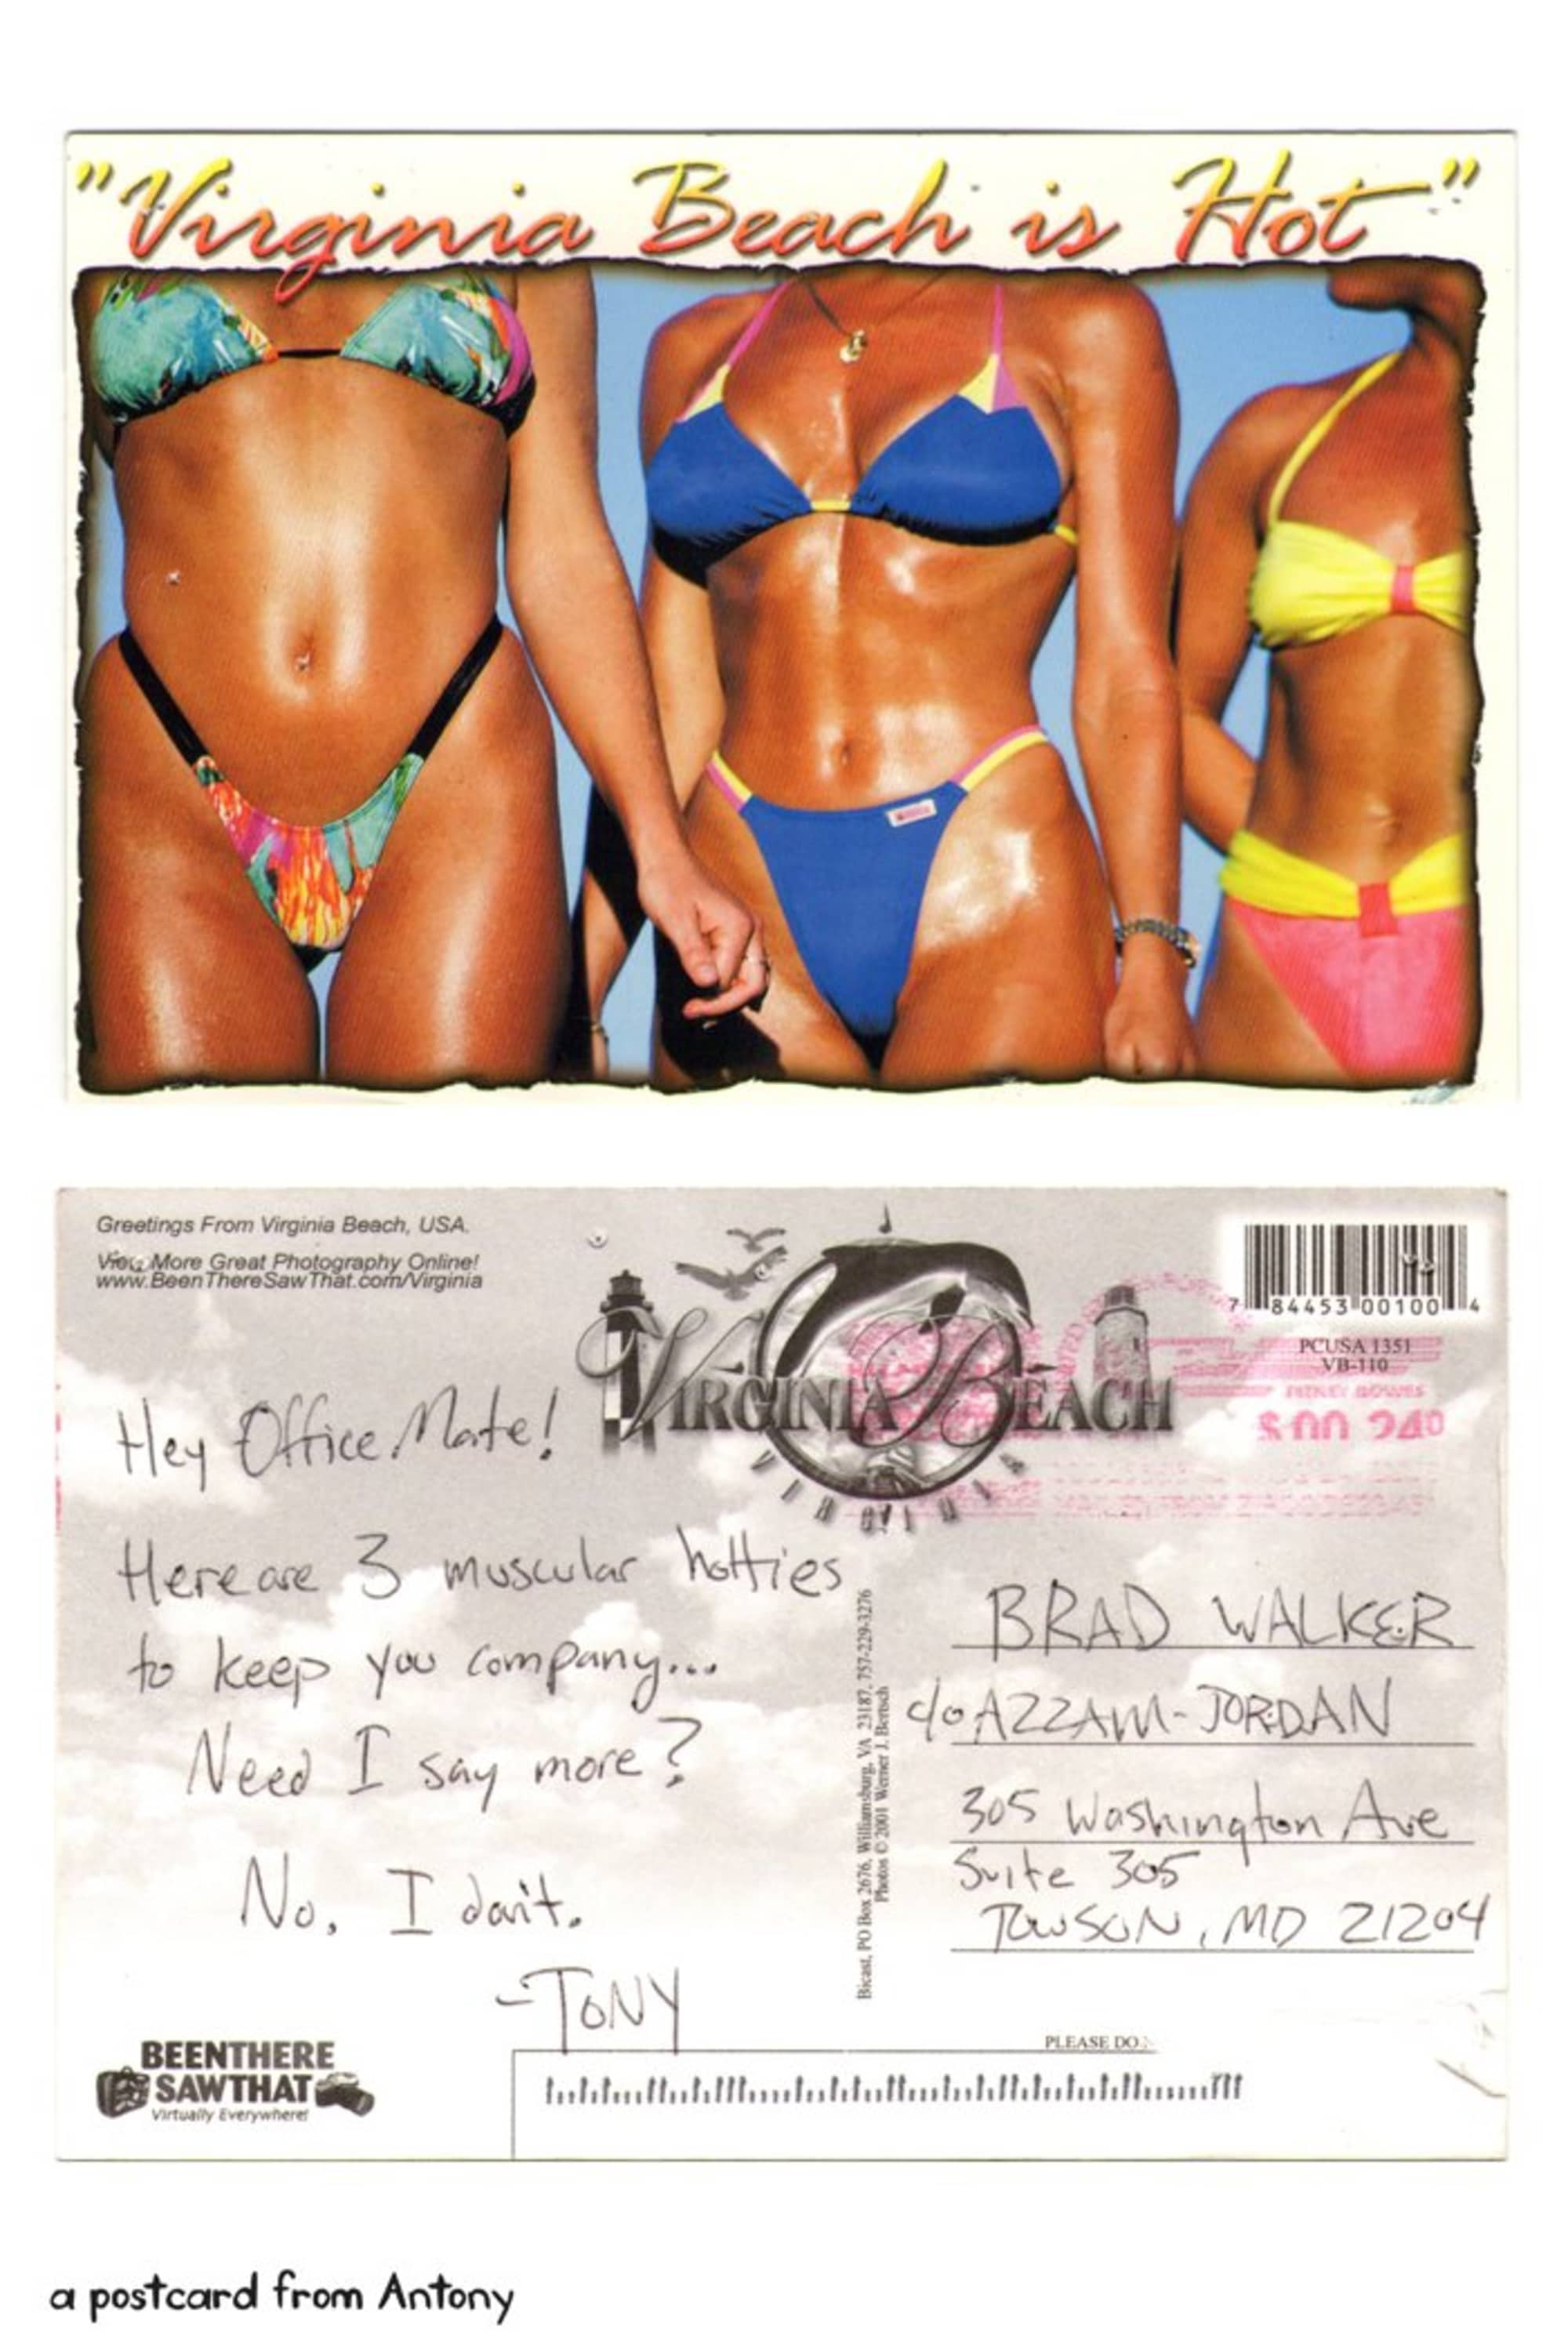 "Virginia Beach is Hot"
Greetings From Virginia Beach, USA.
View More Great Photography Online!
www.BeenThereSawThat.com/Virginia
VIRGINIA BEACH
VIRGINIA
7 84453 00100 4
PCUSA 1351
VB-110
PITNEY BOWES
$00 240
Hey Office Mate!
Here are 3 muscular hotties
to keep you company...
Need I say more?
No, I don't.
-TONY
Bicast, PO Box 2676, Williamsburg, VA 23187, 757-229-3276
Photos © 2001 Werner J. Bertsch
BRAD WALKER
c/o AZZAM-JORDAN
305 Washington Ave
Suite 305
TOWSON, MD 21204
PLEASE DO
BEENTHERE
SAWTHAT
Virtually Everywhere!
a postcard from Antony